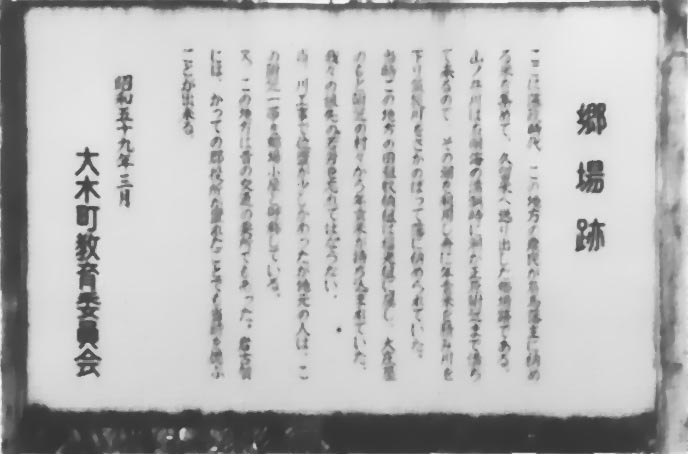 郷場跡
ここは藩政時代、この地方の農民が有馬藩主に納め
る米を集めて、久留米へ送り出した郷場跡である。
山ノ井川は有明海の満潮時に潮が正原附近まで満ち
て来るので、その潮を利用し舟に年貢米を積み川を
下り筑後川をさかのぼって藩に納められていた。
当時この地方の田租収納
のもと附近の村々から年貢米が持ち込まれていた。
我々の祖先の苦労も忘れてはならない。
尚、川工事で位置が少しかわったが地元の人は、こ
の附近一帯を郷場小屋と呼称している。
又、この地方は昔の交通の要所でもあった。
には、かつての郡役所が置かれたことでも当時を偲ぶ
ことが出来る。
昭和五十九年三月
大木町教育委員会